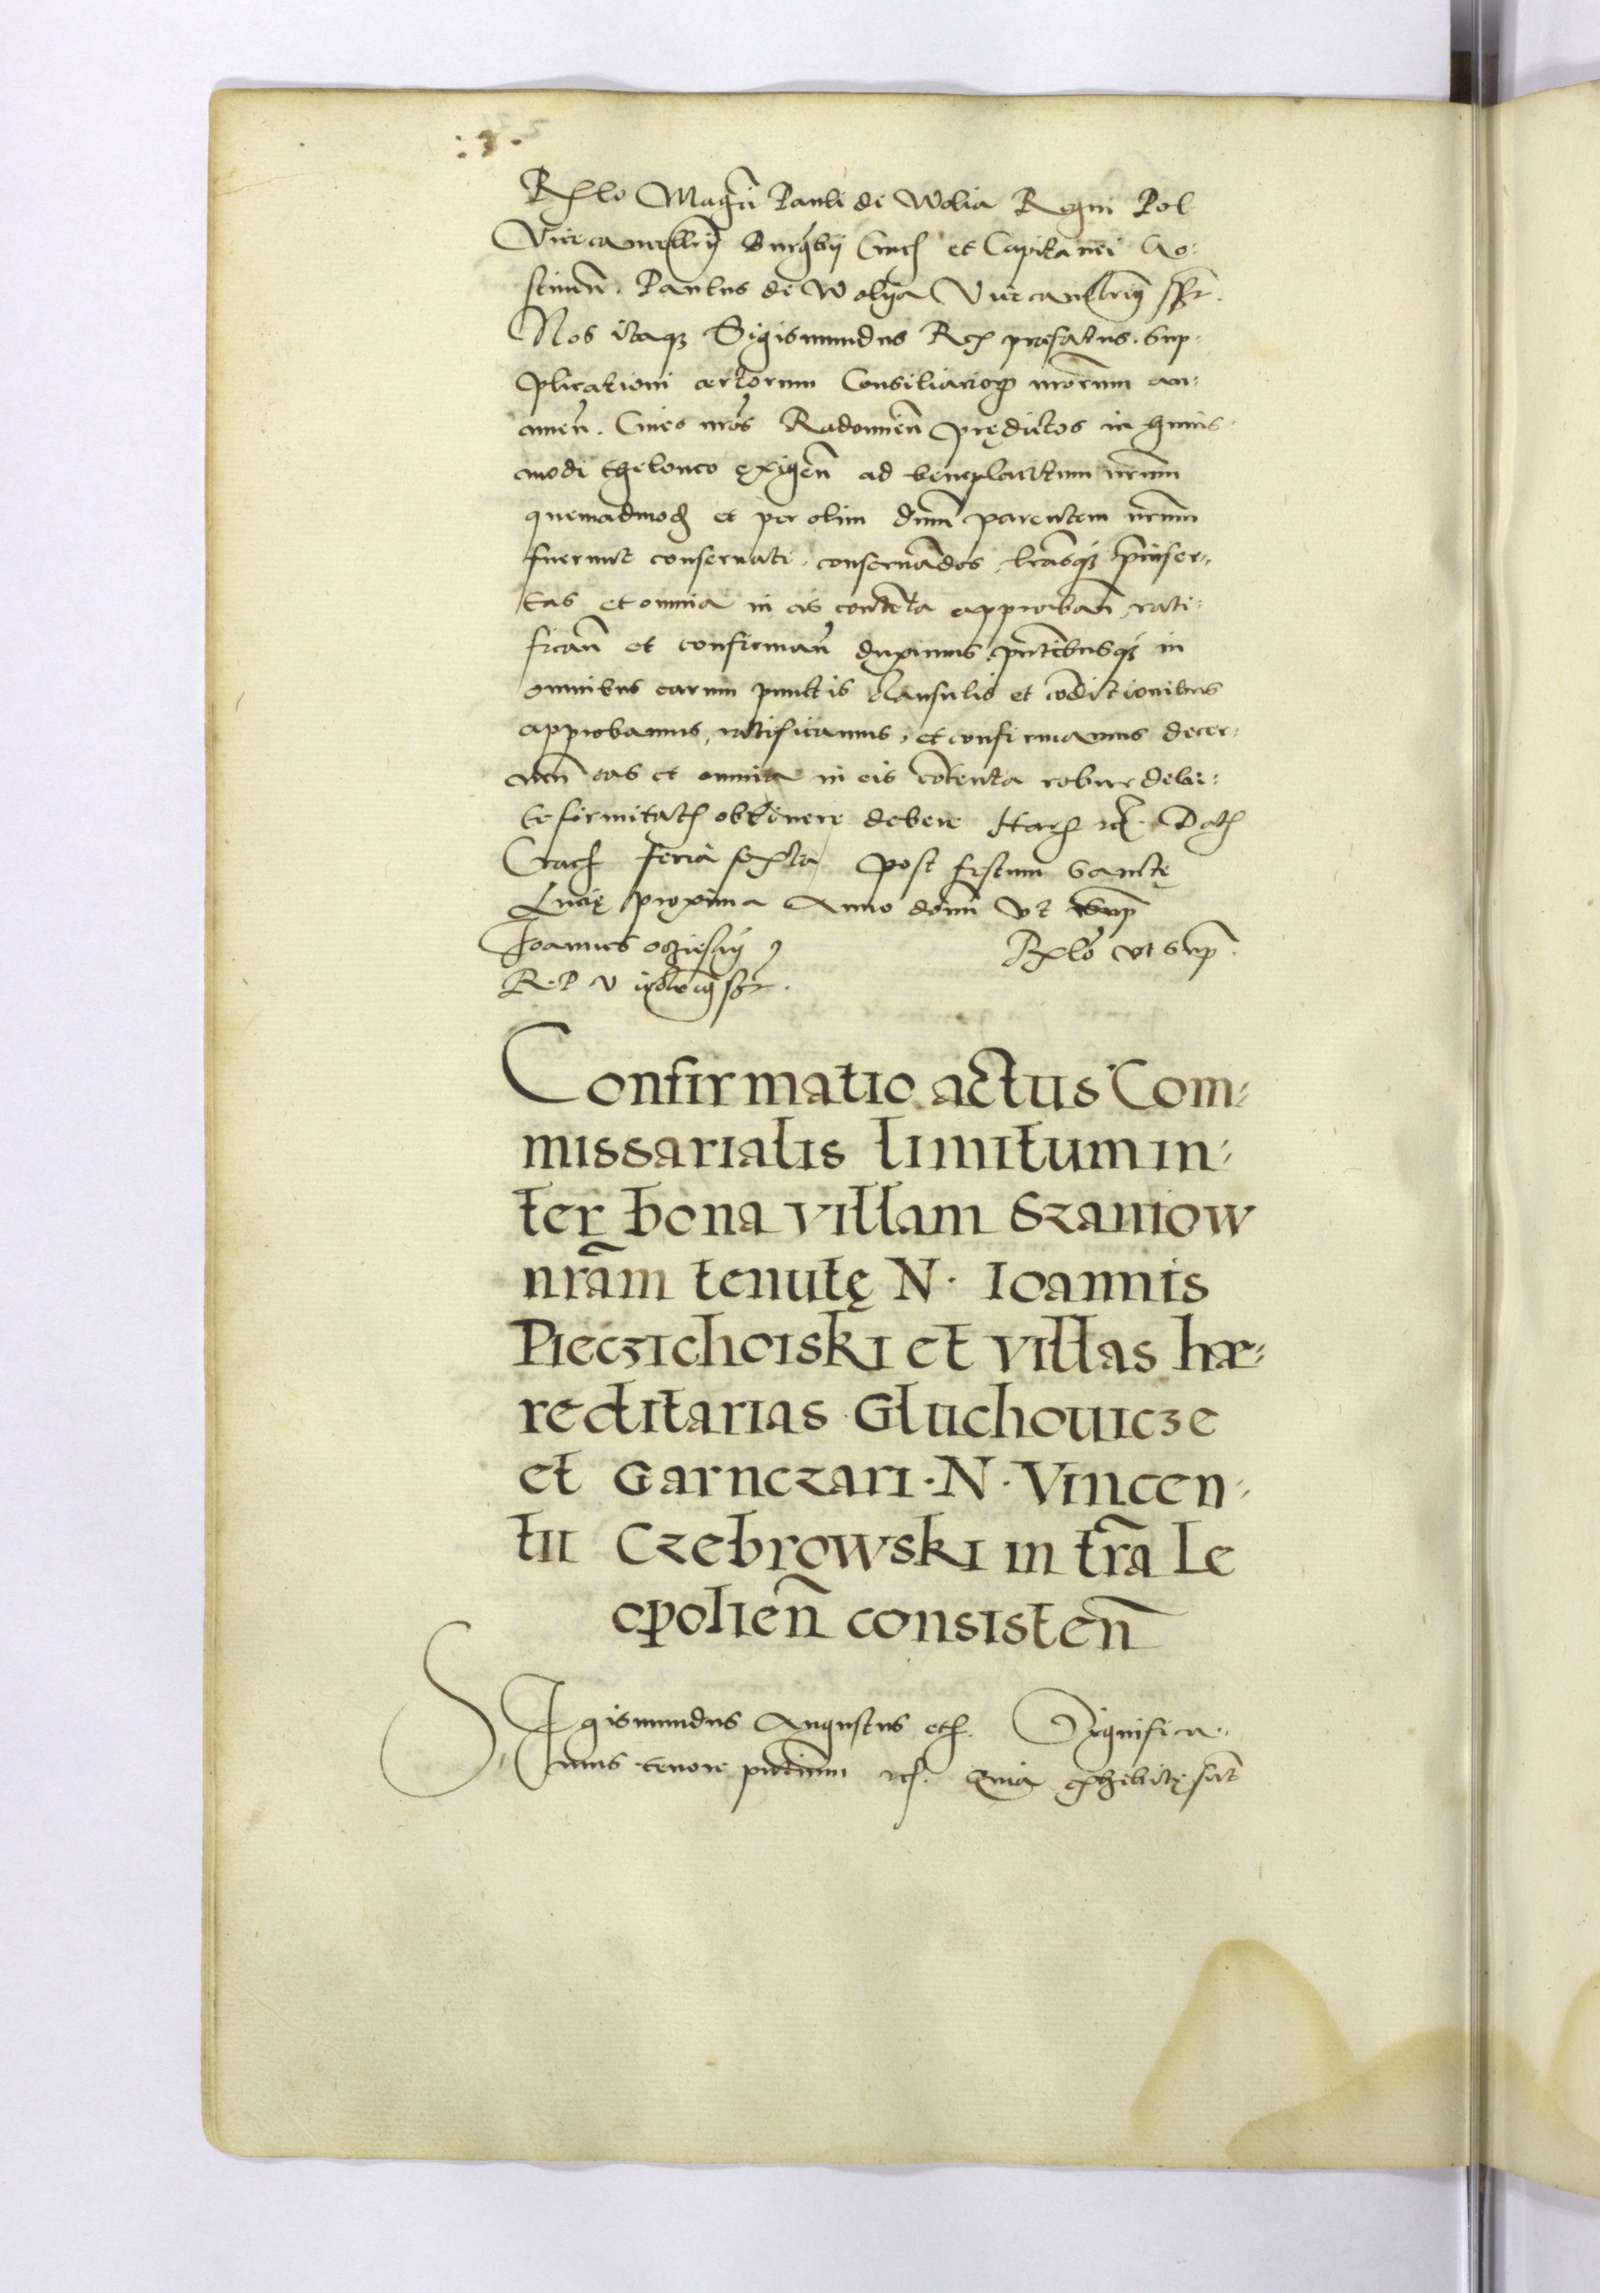 Rlo Magci Pauli de Wolia Regni Pol
Vicecancellrij Burgbij Cracs et Capitanei Go-
stinen. Paulus de Wolija Vicecanclrius sspt.
Nos itaq3 Sigismundus Rex prefatus. Sup-
plicationi certorum Consiliariorum nrorum an-
nuen. Ciues nros Radomien prędictos in huius-
modi theloneo exigen ad beneplacitum nrum
quemadmod et per olim dnum parentem nrum
fuerunt conseruati. conseruados. lrasq3 preinser-
tas et omnia in eis contenta approban rati-
fican et confirman duximus. pntibusq3 in
omnibus earum punctis clausulis et coditionibus
approbamus, ratificamus, et confirmamus decer-
nen eas et omnia in eis cotenta robur debi-
te firmitatis obtinere debere Harum etc. Dat
Crac feria sexta post festum Sanctę
Lucię proxima Anno domi vt Sup
Joannes oczieski
R. P. V icecancellarius sst. Rlo vt sup.
Confirmatio actus Com-
missarialis limitum in-
ter bona villam Szaniow
nram tenutę N. Ioannis
Pieczichoiski et villas hæ-
reditarias Gluchouicze
et Garnczari. N. Vincen-
tii Czebrowski in tra Le
opolien consisten
Sigismundus Augustus etc. Significa-
mus tenore pntium etc. Quia exhibitę sunt